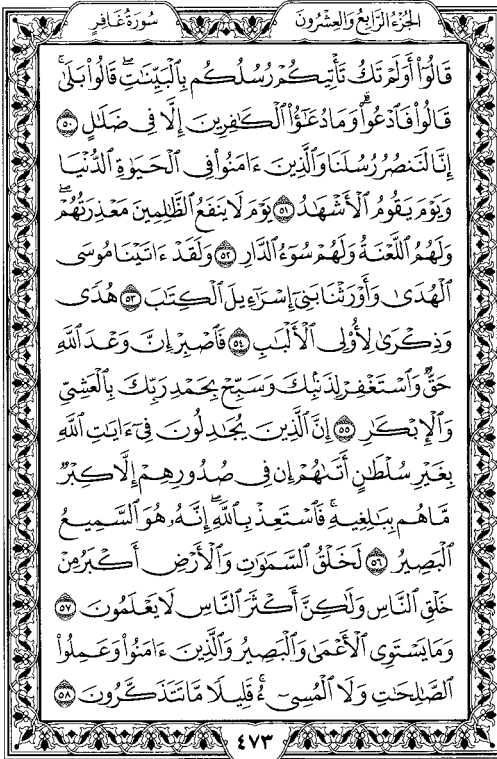 الجُزْءُ الرَّابِعُ وَالعِشْرُونَ سُورَةُ غَافِرٍ
قَالُوٓا۟ أَوَلَمْ تَكُ تَأْتِيكُمْ رُسُلُكُم بِٱلْبَيِّنَٰتِ ۖ قَالُوا۟ بَلَىٰ ۚ
قَالُوا۟ فَٱدْعُوا۟ ۗ وَمَا دُعَٰٓؤُا۟ ٱلْكَٰفِرِينَ إِلَّا فِى ضَلَٰلٍ ٥٠
إِنَّا لَنَنصُرُ رُسُلَنَا وَٱلَّذِينَ ءَامَنُوا۟ فِى ٱلْحَيَوٰةِ ٱلدُّنْيَا
وَيَوْمَ يَقُومُ ٱلْأَشْهَٰدُ ٥١ يَوْمَ لَا يَنفَعُ ٱلظَّٰلِمِينَ مَعْذِرَتُهُمْ ۖ
وَلَهُمُ ٱللَّعْنَةُ وَلَهُمْ سُوٓءُ ٱلدَّارِ ٥٢ وَلَقَدْ ءَاتَيْنَا مُوسَى
ٱلْهُدَىٰ وَأَوْرَثْنَا بَنِىٓ إِسْرَٰٓءِيلَ ٱلْكِتَٰبَ ٥٣ هُدًى
وَذِكْرَىٰ لِأُو۟لِى ٱلْأَلْبَٰبِ ٥٤ فَٱصْبِرْ إِنَّ وَعْدَ ٱللَّهِ
حَقٌّ وَٱسْتَغْفِرْ لِذَنۢبِكَ وَسَبِّحْ بِحَمْدِ رَبِّكَ بِٱلْعَشِىِّ
وَٱلْإِبْكَٰرِ ٥٥ إِنَّ ٱلَّذِينَ يُجَٰدِلُونَ فِىٓ ءَايَٰتِ ٱللَّهِ
بِغَيْرِ سُلْطَٰنٍ أَتَىٰهُمْ ۙ إِن فِى صُدُورِهِمْ إِلَّا كِبْرٌ
مَّا هُم بِبَٰلِغِيهِ ۚ فَٱسْتَعِذْ بِٱللَّهِ ۖ إِنَّهُۥ هُوَ ٱلسَّمِيعُ
ٱلْبَصِيرُ ٥٦ لَخَلْقُ ٱلسَّمَٰوَٰتِ وَٱلْأَرْضِ أَكْبَرُ مِنْ
خَلْقِ ٱلنَّاسِ وَلَٰكِنَّ أَكْثَرَ ٱلنَّاسِ لَا يَعْلَمُونَ ٥٧
وَمَا يَسْتَوِى ٱلْأَعْمَىٰ وَٱلْبَصِيرُ وَٱلَّذِينَ ءَامَنُوا۟ وَعَمِلُوا۟
ٱلصَّٰلِحَٰتِ وَلَا ٱلْمُسِىٓءُ ۚ قَلِيلًا مَّا تَتَذَكَّرُونَ ٥٨
٤٧٣